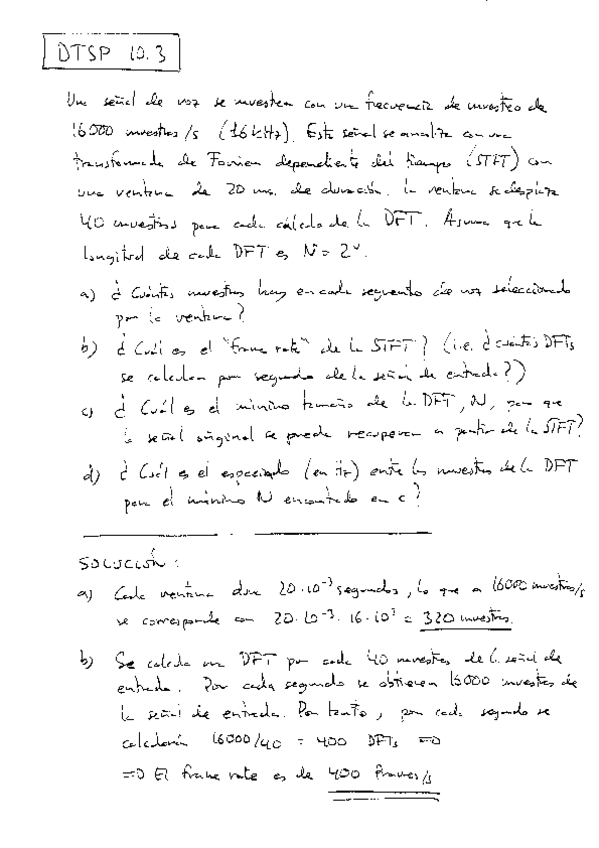 DTSP 10.3
Una señal de voz se muestrea con una frecuencia de muestreo de
16000 muestras/s (16 kHz). Esta señal se analiza con una
transformada de Fourier dependiente del tiempo (STFT) con
una ventana de 20 ms. de duración. La ventana se desplaza
40 muestras para cada cálculo de la DFT. Asuma que la
longitud de cada DFT es N = 2ᵛ.
a) ¿Cuántas muestras hay en cada segmento de voz seleccionado
por la ventana?
b) ¿Cuál es el "frame rate" de la STFT? (i.e. ¿cuántas DFTs
se calculan por segundo de la señal de entrada?)
c) ¿Cuál es el mínimo tamaño de la DFT, N, para que
la señal original se pueda recuperar a partir de la STFT?
d) ¿Cuál es el espaciado (en Hz) entre las muestras de la DFT
para el mínimo N encontrado en c?
SOLUCIÓN:
a) Cada ventana dura 20·10⁻³ segundos, lo que a 16000 muestras/s
se corresponde con 20·10⁻³·16·10³ = 320 muestras.
b) Se calcula una DFT por cada 40 muestras de la señal de
entrada. Por cada segundo se obtienen 16000 muestras de
la señal de entrada. Por tanto, por cada segundo se
calcularán 16000/40 = 400 DFTs =>
=> El frame rate es de 400 frames/s